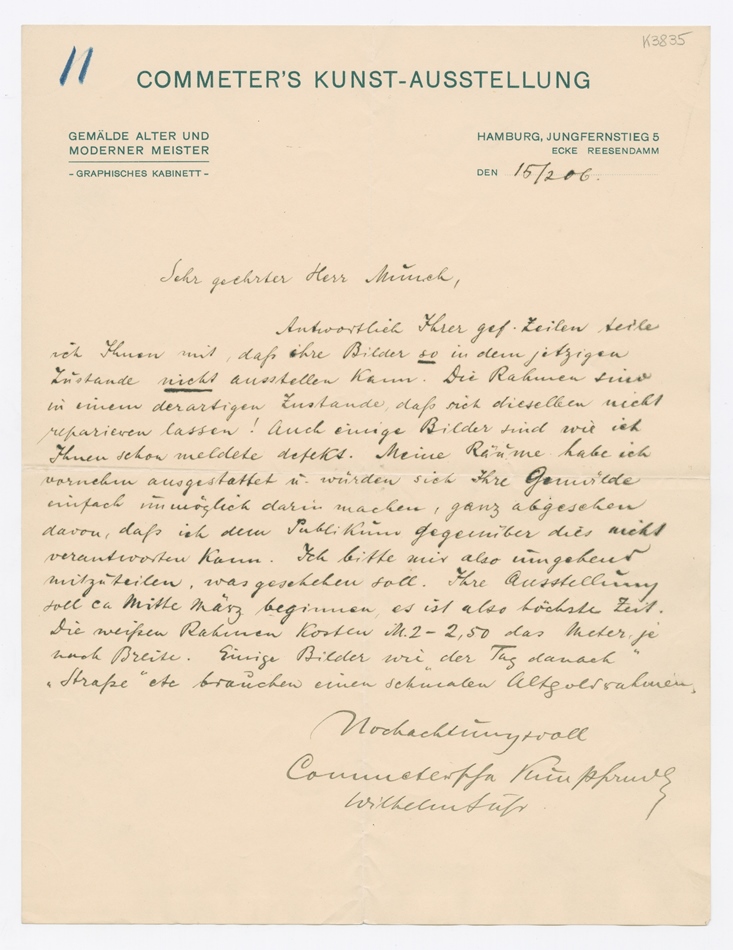 K3835
11
COMMETER'S KUNST-AUSSTELLUNG
GEMÄLDE ALTER UND
MODERNER MEISTER
- GRAPHISCHES KABINETT -
HAMBURG, JUNGFERNSTIEG 5
ECKE REESENDAMM
DEN 15/2 06.
Sehr geehrter Herr Munch,
Antwortlich Ihrer gef. Zeilen teile
ich Ihnen mit, daß ihre Bilder so in dem jetzigen
Zustande nicht ausstellen kann. Die Rahmen sind
in einem derartigen Zustande, daß sich dieselben nicht
reparieren lassen! Auch einige Bilder sind wie ich
Ihnen schon meldete defekt. Meine Räume habe ich
vornehm ausgestattet u. würden sich Ihre Gemälde
einfach unmöglich darin machen, ganz abgesehen
davon, daß ich dem Publikum gegenüber dies nicht
verantworten kann. Ich bitte mir also umgehend
mitzuteilen, was geschehen soll. Ihre Ausstellung
soll ca Mitte März beginnen, es ist also höchste Zeit.
Die weißen Rahmen kosten M. 2 - 2,50 das Meter, je
nach Breite. Einige Bilder wie „der Tag danach"
„Straße" etc brauchen einen schmalen Altgoldrahmen.
Hochachtungsvoll
Commeter'sche
Wilhelm Suhr